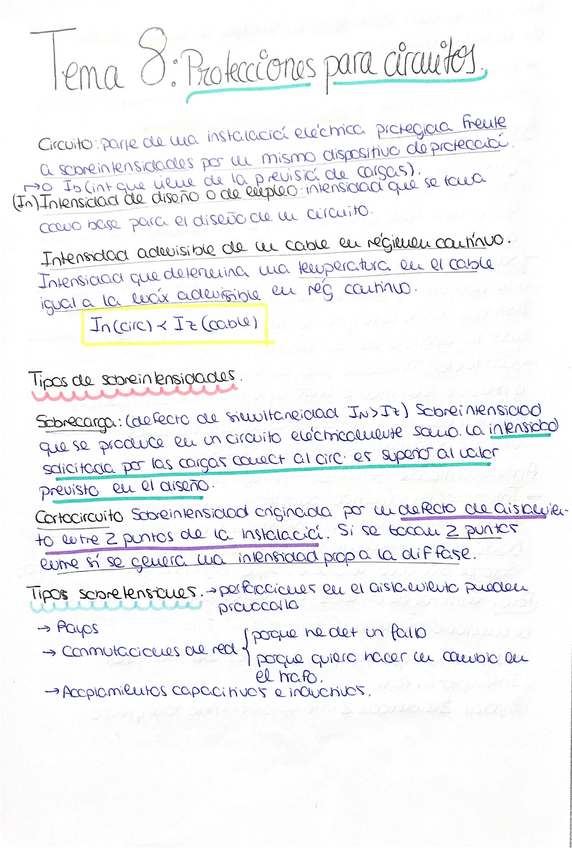 Tema 8: Protecciones para circuitos.
Circuito: parte de una instalació eléctrica protegida frente
a sobreintensidades por un mismo dispositivo de protecció.
→o Ib (int que viene de la previsió de cargas).
(In) Intensidad de diseño o de empleo: intensidad que se toma
como base para el diseño de un circuito.
Intensidad admisible de un cable en régimen continuo.
Intensidad que determina una temperatura en el cable
igual a la máx admisible en rég continuo.
In (circ) < Iz (cable)
Tipos de sobreintensidades.
Sobrecarga: (defecto de simultaneidad IN > Iz) Sobreintensidad
que se produce en un circuito eléctricamente sano. La intensidad
solicitada por las cargas conect al circ. es superior al valor
previsto en el diseño.
Cortocircuito Sobreintensidad originada por un defecto de aislamien-
to entre 2 puntos de la instalació. Si se tocan 2 puntos
entre sí se genera una intensidad prop a la dif fase.
Tipos sobretensiones. → perforaciones en el aislamiento pueden
provocarlo
→ Rayos
→ Conmutaciones de red { porque he det un fallo
porque quiero hacer un cambio en
el trafo.
→ Acoplamientos capacitivos e inductivos.